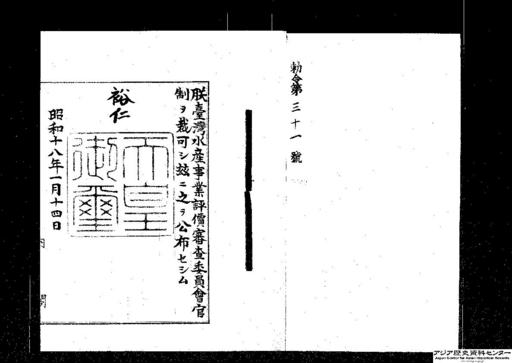 勅令第三十一號
朕臺灣水産事業評價審査委員會官
制ヲ裁可シ玆ニ之ヲ公布セシム
裕仁
天皇
御璽
昭和十八年一月十四日
内 閣
アジア歴史資料センター
Japan Center for Asian Historical Records